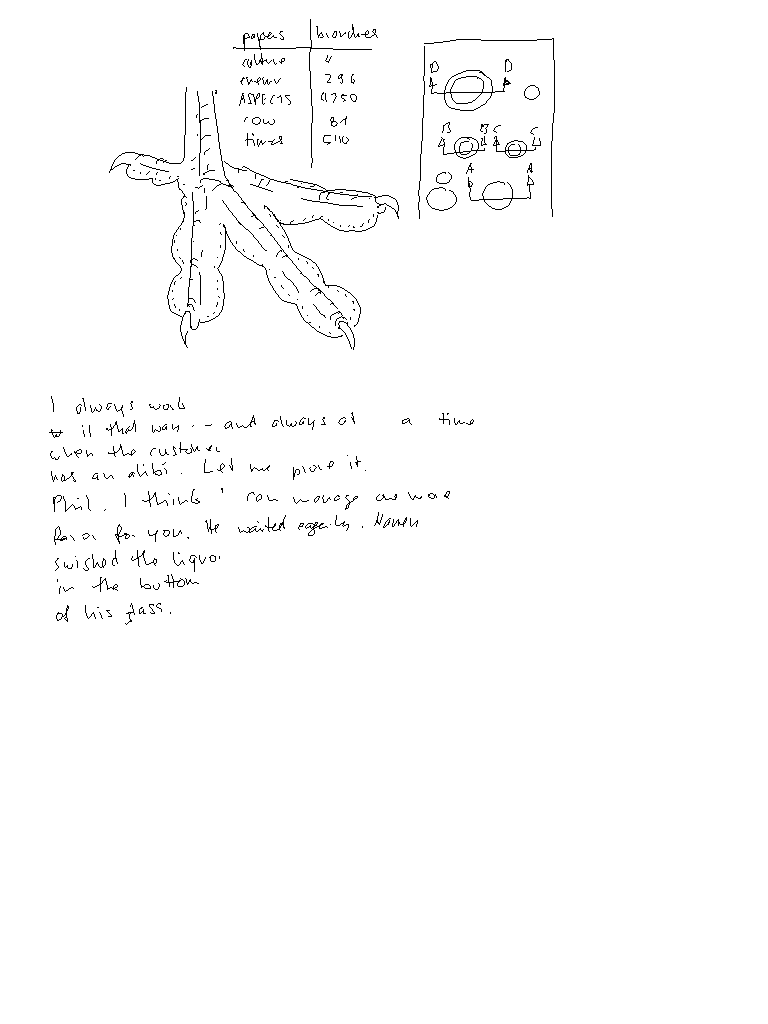 papers branches
culture "
enemy 296
ASPECTS 9750
row 81
times 5110
D D
B B C C
A A
I always work
it that way -- and always at a time
when the customer
has an alibi. Let me prove it,
Phil. I think I can manage one more
favor for you. He waited eagerly. Haven
swished the liquor
in the bottom
of his glass.